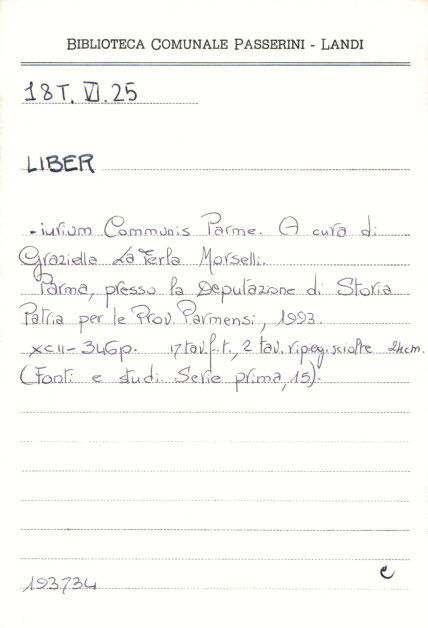 BIBLIOTECA COMUNALE PASSERINI - LANDI
18T. VI. 25
LIBER
-iurium Communis Parme. A cura di
Graziella La Ferla Morselli.
Parma, presso la Deputazione di Storia
Patria per le Prov. Parmensi, 1993.
XCII-346p. 17 tav.f.t., 2 tav. ripieg. sciolte 24cm.
(Fonti e studi Serie prima, 15).
193734
e